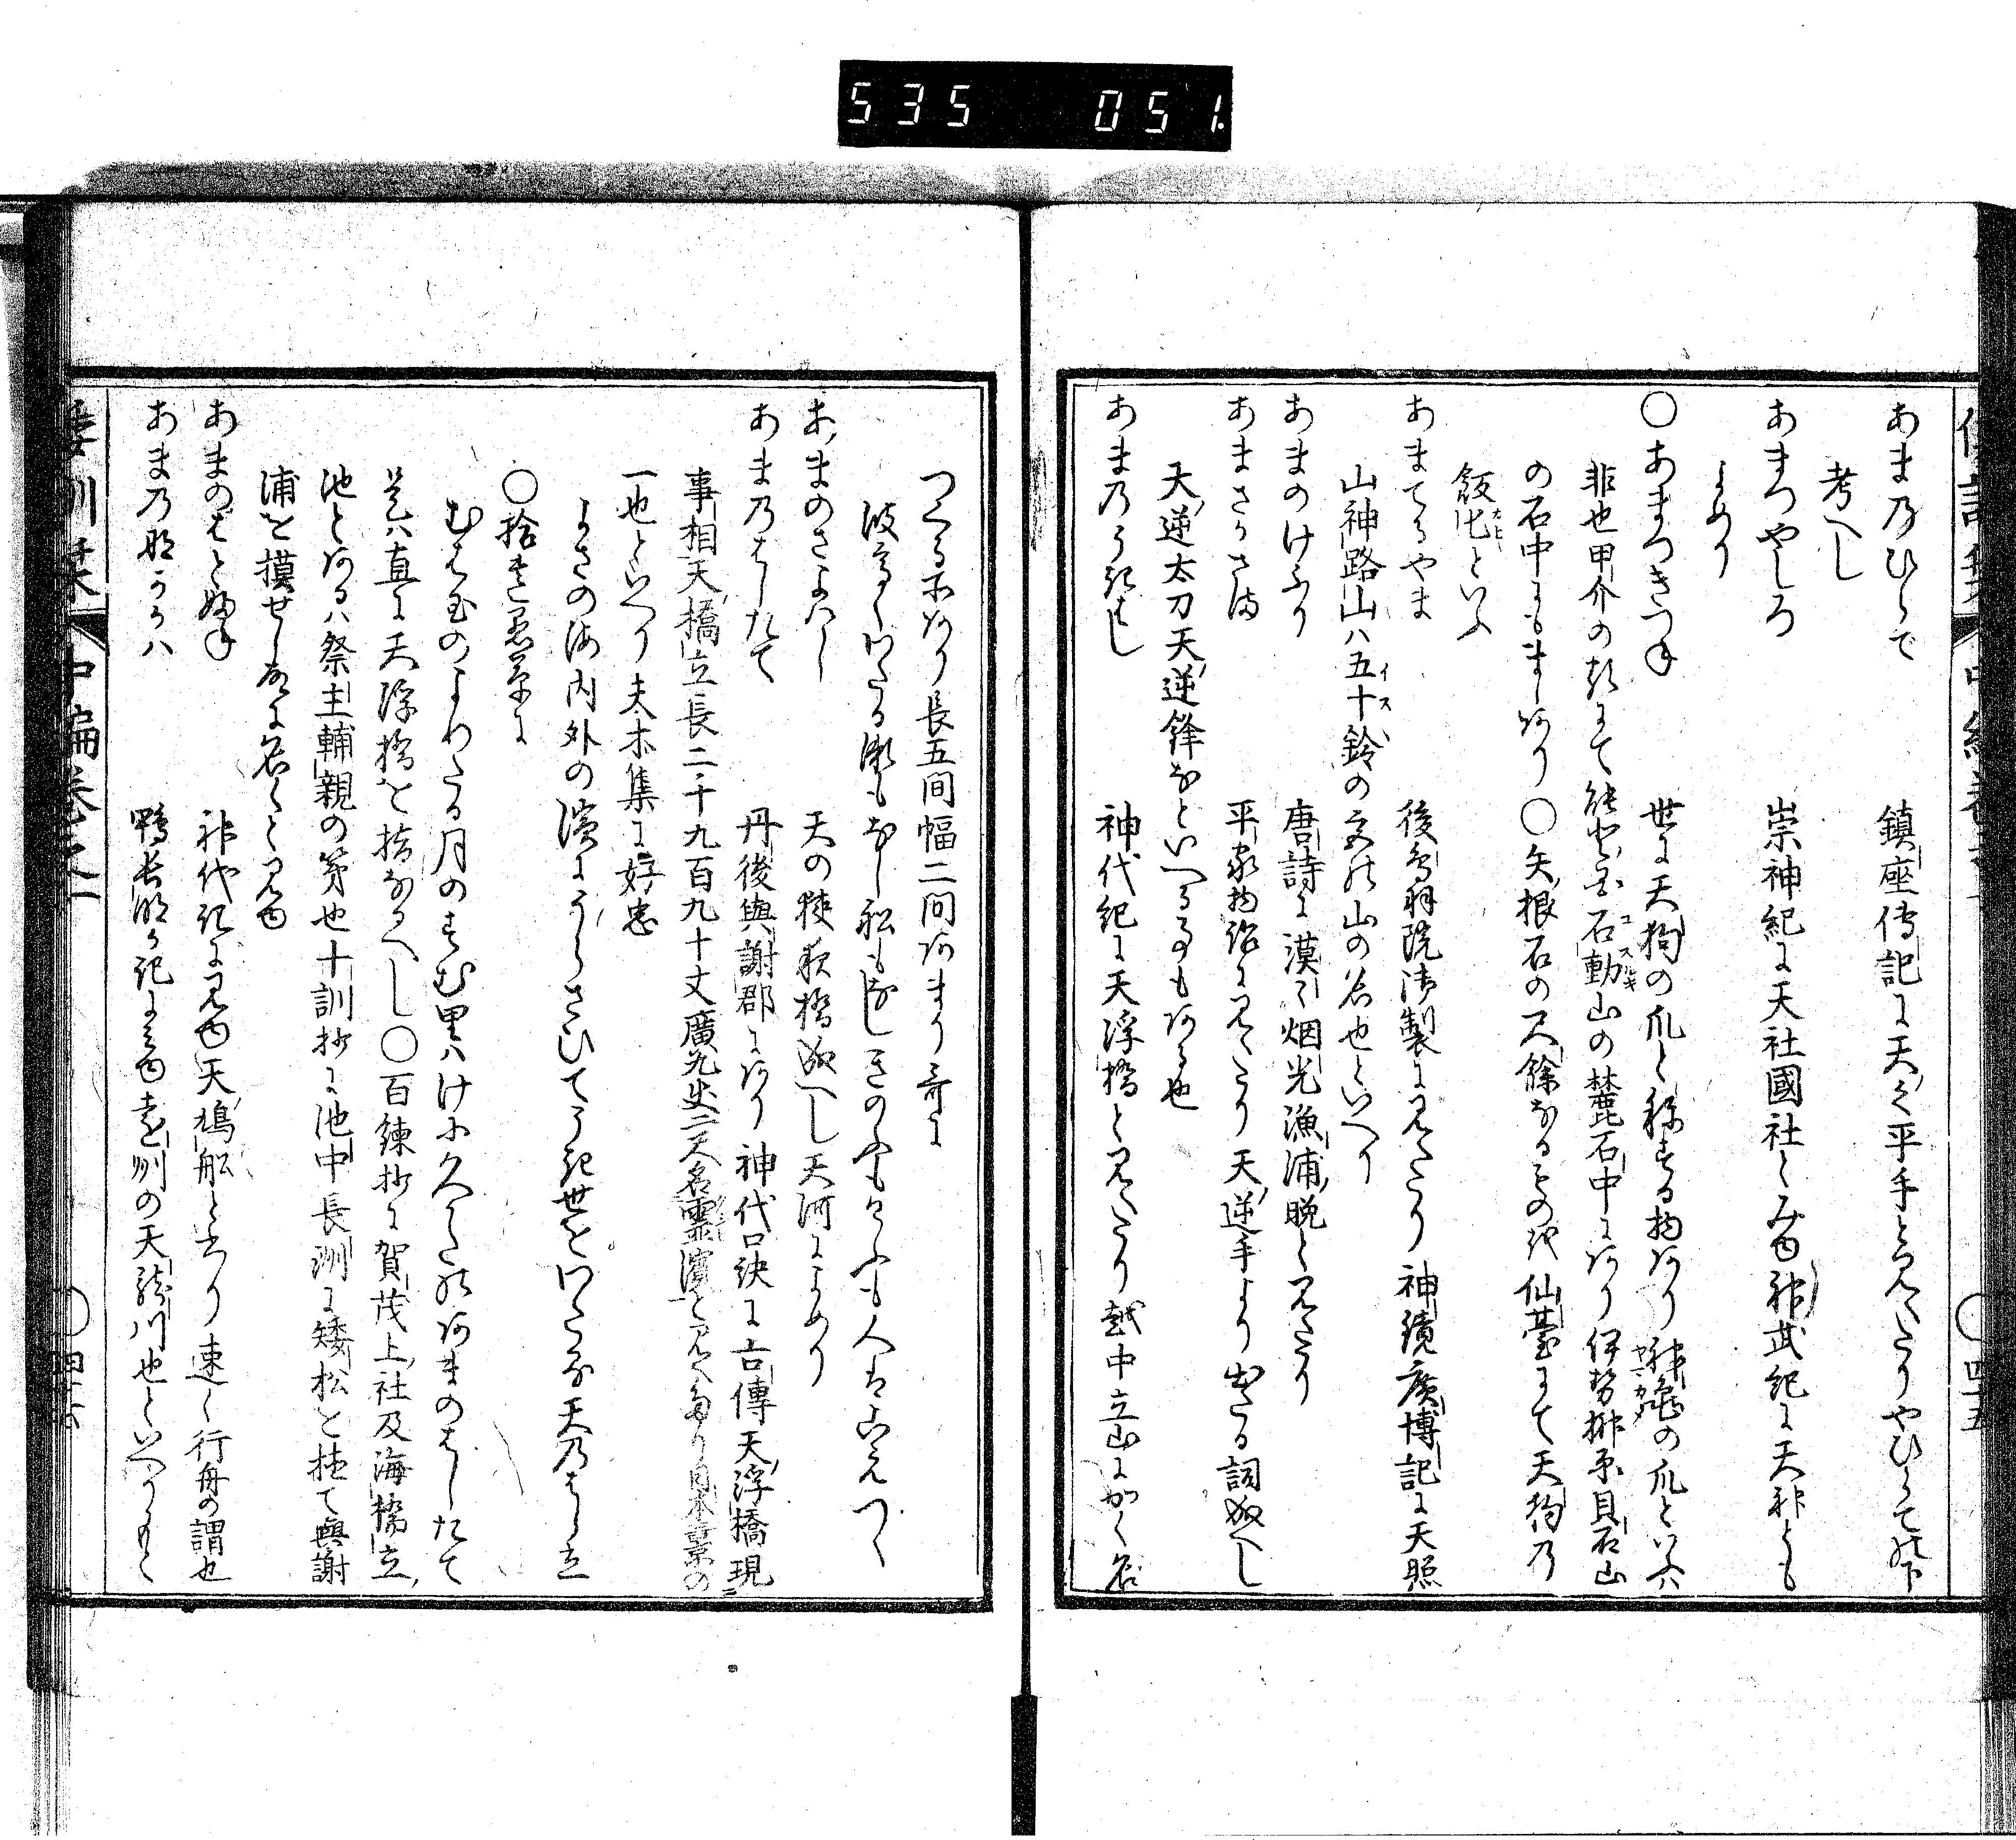 535 051.
あま乃ひらで 鎮座傳記に天之平手と見えたりやひらての下
考へし
あまつやしろ 崇神紀に天社國社とみゆ神武紀に天神とも
よめり
○あまつきつね 世に天狗の爪と稱する物あり神龜の爪といふハ
非也甲介の類にて能登國石動山の麓石中にあり伊勢榊原貝石山
の石中にもまゝあり○矢根石の尺餘なるものを仙臺にて天狗乃
飯匕といふ
あまてるやま 後鳥羽院御製に見えたり神鏡廣博記に天照
山神路山ハ五十鈴の宮の山の名也といへり
あまのけふり 唐詩に漠々烟光漁浦晩と見えたり
あまさかさま 平家物語に見えたり天逆手より出たる詞成へし
天逆太刀天逆鋒などいへる事もある也
あま乃うきはし 神代紀に天浮橋と見えたり越中立山にかく名
つくる所あり長五間幅二間あまり哥に
波高くわたる瀬もなし船もなしきのふもけふも人はこえつゝ
あまのさよはし 天の狭夜橋成へし天河によめり
あま乃はしたて 丹後與謝郡にあり神代口訣に古傳天浮橋現
事相天橋立長二千九百九十丈廣九丈二尺名靈濱と見えたり日本三景の
一也といへり夫木集に好忠
よさの海内外の濱にうらさひてうき世をわたる天乃はし立
○拾遺愚草に
むは玉のよわたる月のすむ里ハけに久かたのあまのはしたて
是ハ直に天浮橋を指なるへし○百錬抄に賀茂上社及海橋立
池とあるハ祭主輔親の第也十訓抄に池中長洲に矮松を植て與謝
浦を摸せし故に名くと見ゆ
あまのはとふね 神代紀に見ゆ天鳩舩と書り速く行舟の謂也
あま乃なかかハ 鴨長明か記にみゆ遠州の天龍川也といへりもと
倭訓栞 中編卷之一 四十五
倭訓栞 中編卷之一 四十六